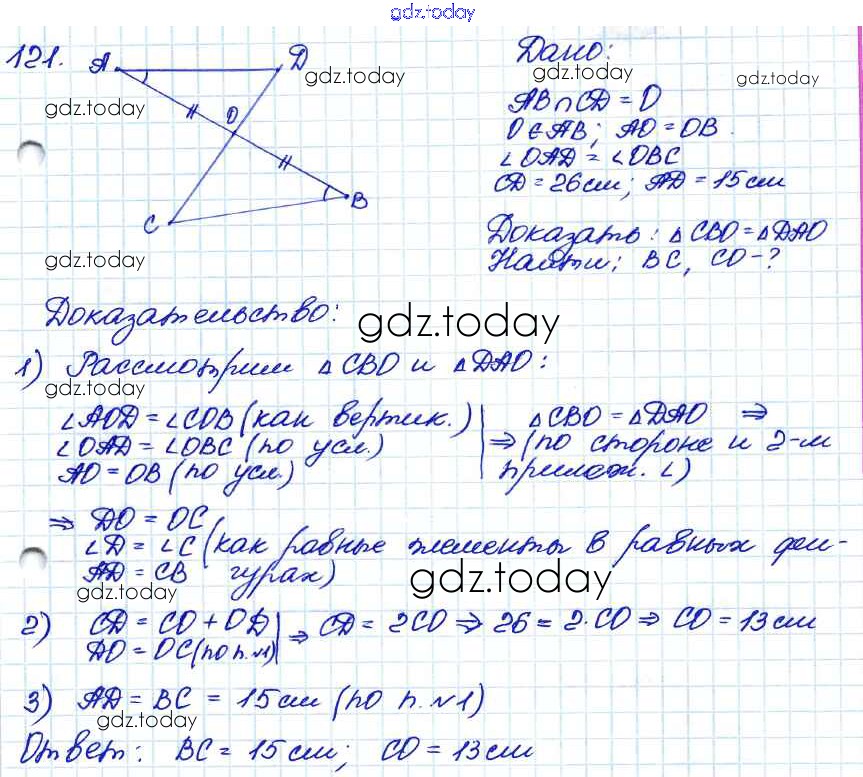 gdz.today
121.
A
D
O
C
B
gdz.today
gdz.today
Дано:
gdz.today
gdz.today
AB∩CD = O
O∈AB; AO = OB.
∠OAD = ∠OBC
CD = 26см; AD = 15см
Доказать: △CBO = △DAO
Найти: BC, CO - ?
gdz.today
Доказательство:
gdz.today
1) Рассмотрим △CBO и △DAO:
gdz.today
∠AOD = ∠COB (как вертик.)
∠OAD = ∠OBC (по усл.)
AO = OB (по усл.)
△CBO = △DAO ⇒
⇒ (по стороне и 2-м
прилеж. ∠)
⇒ DO = OC
∠D = ∠C (как равные элементы в равных фи-
AD = CB гурах)
gdz.today
gdz.today
2) CD = CO + OD
DO = OC (по п.№1)
⇒ CD = 2CO ⇒ 26 = 2·CO ⇒ CO = 13см
gdz.today
3) AD = BC = 15см (по п.№1)
gdz.today
Ответ: BC = 15см; CO = 13см